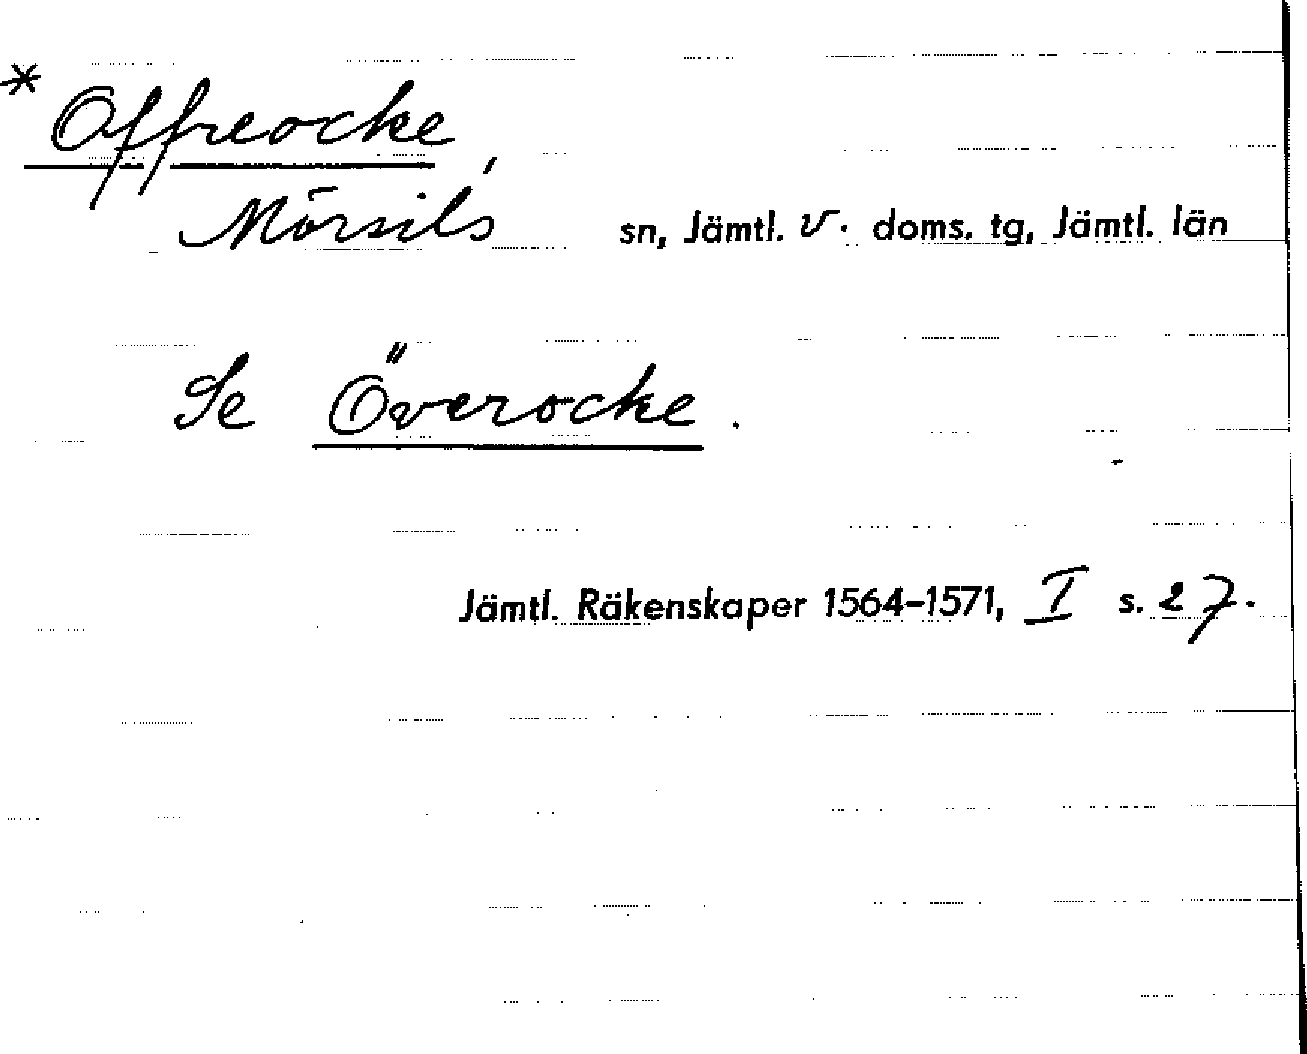 * Offreocke,
Mörsils sn, Jämtl. v. doms. tg, Jämtl. län
Se Överocke.
Jämtl. Räkenskaper 1564-1571, I s. 27.